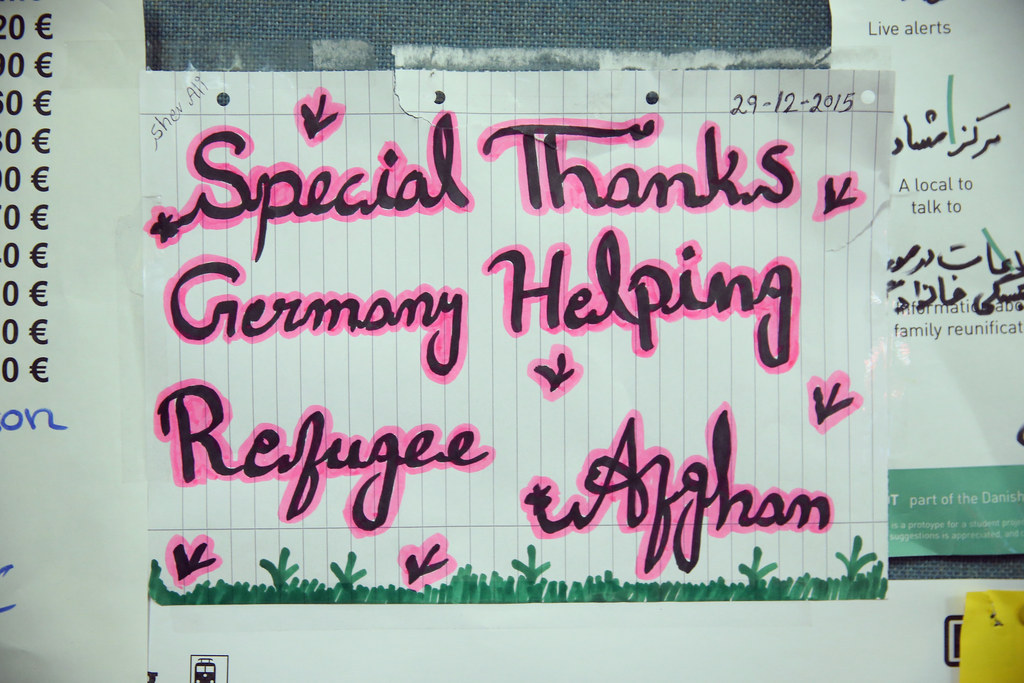 20 €
90 €
60 €
80 €
90 €
70 €
40 €
0 €
0 €
0 €
Sher Ali
29-12-2015
Special Thanks
Germany Helping
Refugee Afghan
Live alerts
مرکز
A local to
talk to
Information abo
family reunificat
part of the Danish
is a protoype for a student proje
suggestions is appreciated, and